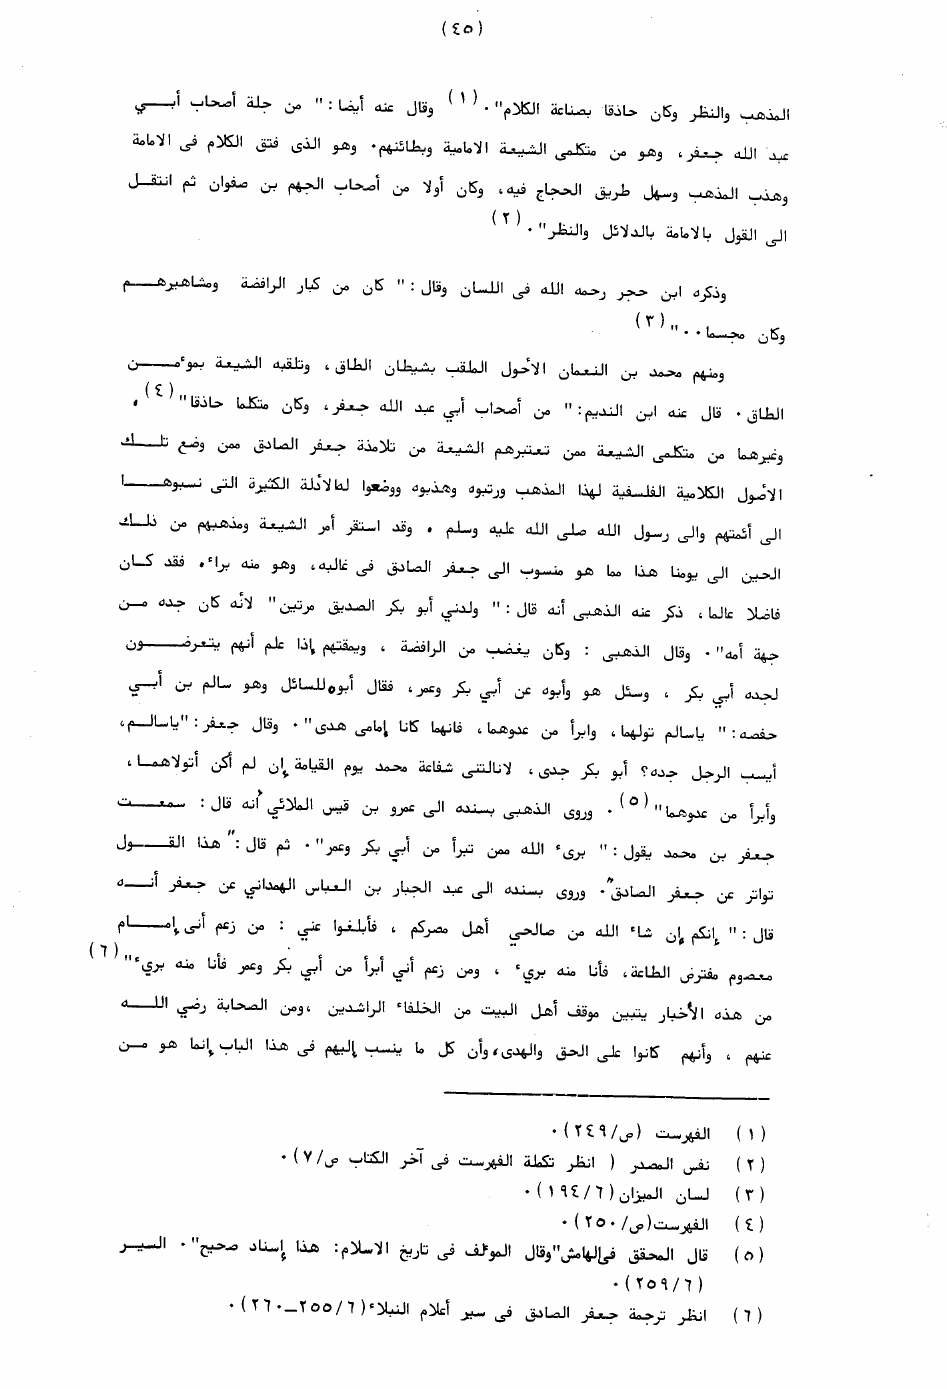 (٤٥)
المذهب والنظر وكان حاذقا بصناعة الكلام"٠(١) وقال عنه أيضا:" من جلة أصحاب أبـــي
عبد الله جعفر، وهو من متكلمى الشيعة الامامية وبطائنهم٠ وهو الذى فتق الكلام فى الامامة
وهذب المذهب وسهل طريق الحجاج فيه، وكان أولا من أصحاب الجهم بن صفوان ثم انتقـل
الى القول بالامامة بالدلائل والنظر"٠(٢)
وذكره ابن حجر رحمه الله فى اللسان وقال:" كان من كبار الرافضة ومشاهيرهـــم
وكان مجسما٠٠"(٣)
ومنهم محمد بن النعمان الأحول الملقب بشيطان الطاق، وتلقبه الشيعة بموءمــــن
الطاق٠ قال عنه ابن النديم:" من أصحاب أبي عبد الله جعفر، وكان متكلما حاذقا"(٤)،
وغيرهما من متكلمى الشيعة ممن تعتبرهم الشيعة من تلامذة جعفر الصادق ممن وضع تلـــك
الأصول الكلامية الفلسفية لهذا المذهب ورتبوه وهذبوه ووضعوا له الأدلة الكثيرة التى نسبوهـــا
الى أئمتهم والى رسول الله صلى الله عليه وسلم ٠ وقد استقر أمر الشيعة ومذهبهم من ذلـك
الحين الى يومنا هذا مما هو منسوب الى جعفر الصادق فى غالبه، وهو منه براء٠ فقد كـان
فاضلا عالما، ذكر عنه الذهبى أنه قال:" ولدني أبو بكر الصديق مرتين" لأنه كان جده مـن
جهة أمه"٠ وقال الذهبى : وكان يغضب من الرافضة ، ويمقتهم إذا علم أنهم يتعرضــــون
لجده أبي بكر ، وسئل هو وأبوه عن أبي بكر وعمر، فقال أبوه للسائل وهو سالم بن أبــي
حفصه:" ياسالم تولهما، وابرأ من عدوهما، فانهما كانا إمامى هدى"٠ وقال جعفر:"ياسالـم،
أيسب الرجل جده؟ أبو بكر جدى، لانالتنى شفاعة محمد يوم القيامة إن لم أكن أتولاهمـا،
وأبرأ من عدوهما"(٥)٠ وروى الذهبى بسنده الى عمرو بن قيس الملائي أنه قال: سمعـــت
جعفر بن محمد يقول:" برىء الله ممن تبرأ من أبي بكر وعمر"٠ ثم قال:"هذا القـــول
تواتر عن جعفر الصادق"٠ وروى بسنده الى عبد الجبار بن العباس الهمداني عن جعفر أنــه
قال:" إنكم إن شاء الله من صالحي أهل مصركم ، فأبلغوا عني : من زعم أنى إمـــام
معصوم مفترض الطاعة، فأنا منه بريء ، ومن زعم أني أبرأ من أبي بكر وعمر فأنا منه بريء"(٦)
من هذه الأخبار يتبين موقف أهل البيت من الخلفاء الراشدين ،ومن الصحابة رضي اللــه
عنهم ، وأنهم كانوا على الحق والهدى، وأن كل ما ينسب إليهم فى هذا الباب إنما هو مــن
(١) الفهرست (ص/٢٤٩)٠
(٢) نفس المصدر ( انظر تكملة الفهرست فى آخر الكتاب ص/٧)٠
(٣) لسان الميزان(١٩٤/٦)٠
(٤) الفهرست(ص/٢٥٠)٠
(٥) قال المحقق فى الهامش"وقال الموءلف فى تاريخ الاسلام: هذا إسناد صحيح"٠ السيــر
(٢٥٩/٦)٠
(٦) انظر ترجمة جعفر الصادق فى سير أعلام النبلاء(٢٥٥/٦_٢٦٠)٠